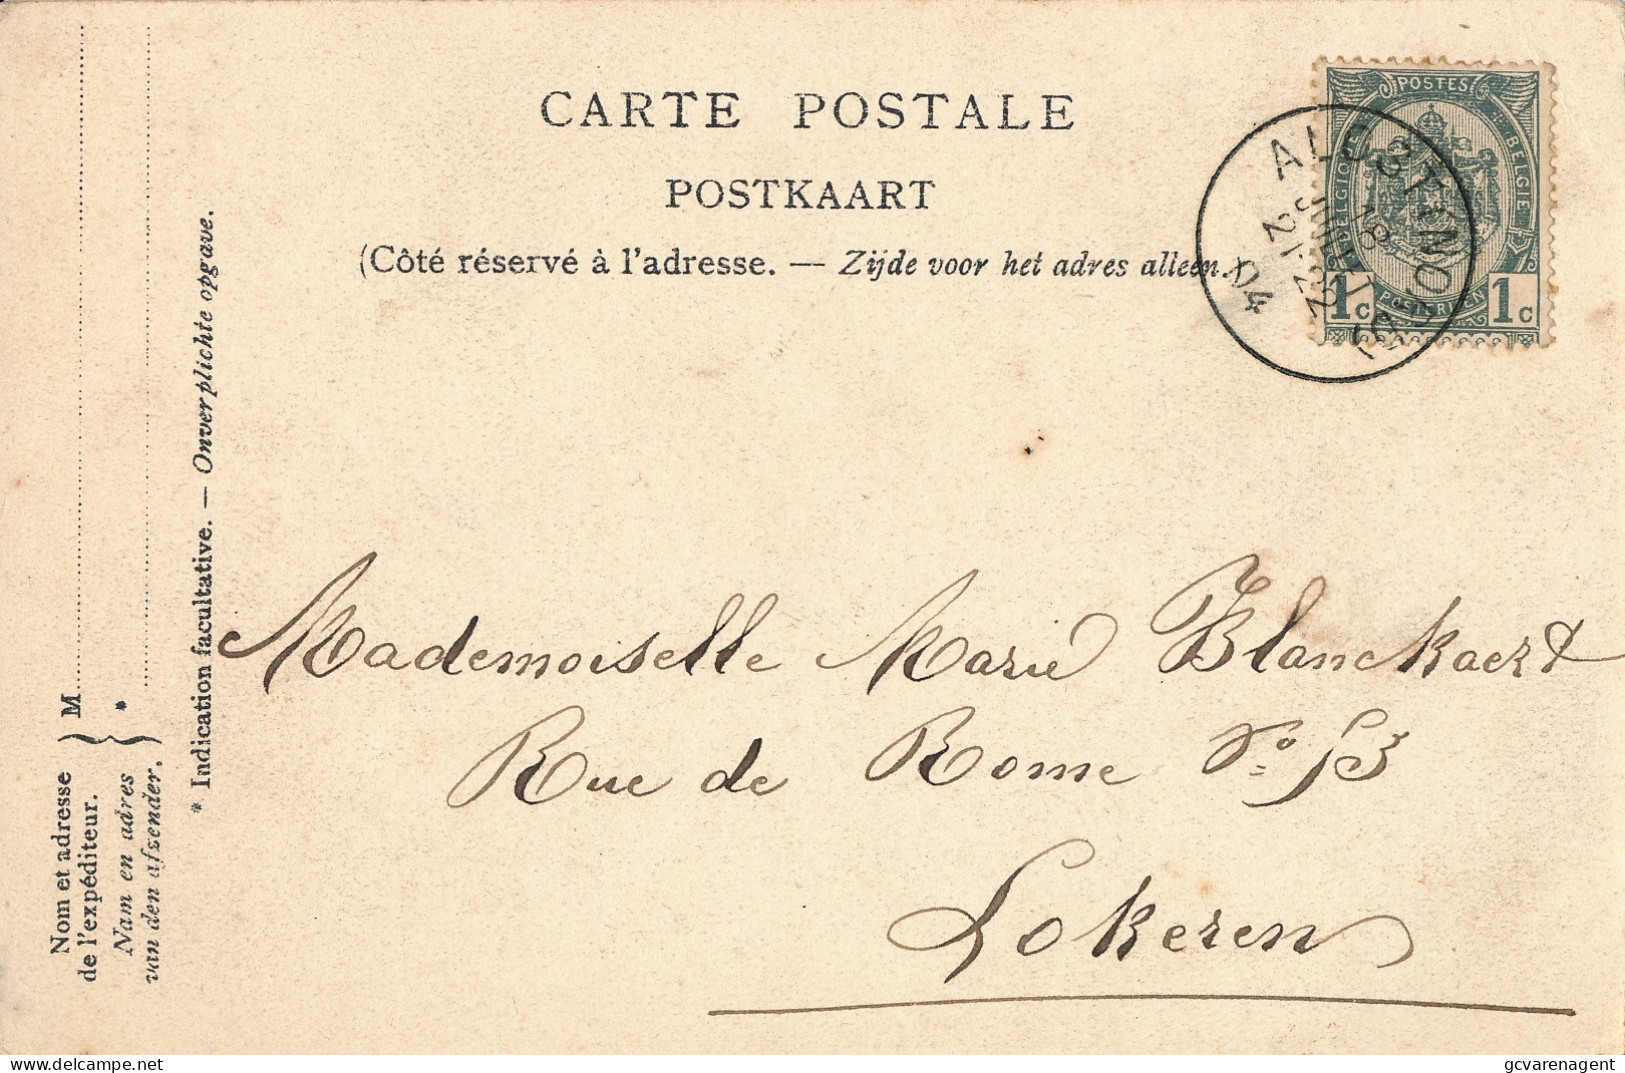 CARTE POSTALE
POSTKAART
(Côté réservé à l'adresse. — Zijde voor het adres alleen.)
POSTES
BELGIQUE BELGIË
POSTERIJEN
1c 1c
ALOST
18
JUIL
04
Mademoiselle Marie Blanckaert
Rue de Rome No 53
Lokeren
M
*
Nom et adresse
de l'expéditeur.
Nam en adres
van den afzender.
* Indication facultative. — Onverplichte opgave.
delcampe.net
gcvarenagent